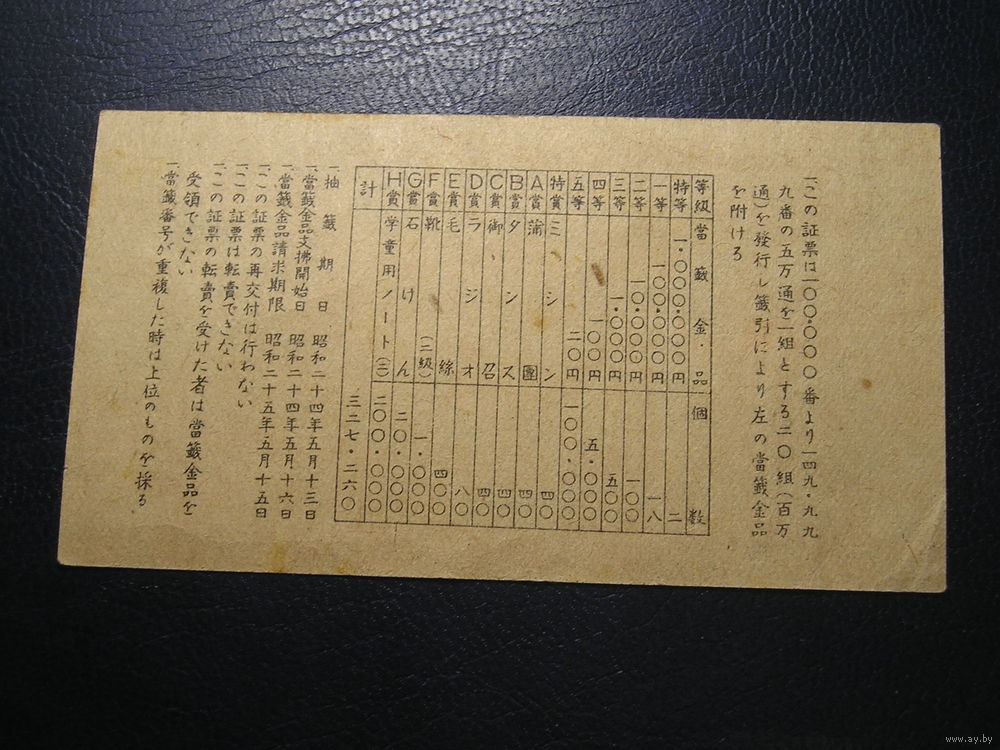 一、この証票は一〇〇・〇〇〇番より一四九・九九
九番の五万通を一組とする二〇組(百万
通)を發行し籤引により左の當籤金品
を附ける
等級 當籤金・品 個数
特等 一・〇〇〇・〇〇〇円 二
一等 一〇〇・〇〇〇円 一八
二等 一〇・〇〇〇円 一〇〇
三等 一・〇〇〇円 五〇〇
四等 一〇〇円 五・〇〇〇
五等 二〇円 一〇〇・〇〇〇
特賞 ミシン 四〇
A賞 蒲團 四〇
B賞 タンス 四〇
C賞 御召 四〇
D賞 ラジオ 八〇
E賞 毛絲 四〇〇
F賞 靴(二級) 一・〇〇〇
G賞 石けん 二〇・〇〇〇
H賞 学童用ノート(三) 二〇〇・〇〇〇
計 三二七・二六〇
一、抽籤期日 昭和二十四年五月十三日
一、當籤金品支拂開始日 昭和二十四年五月十六日
一、當籤金品請求期限 昭和二十五年五月十五日
一、この証票の再交付は行わない
一、この証票は転賣できない
一、この証票の転賣を受けた者は當籤金品を
受領できない
一、當籤番号が重複した時は上位のものを採る
www.ay.by